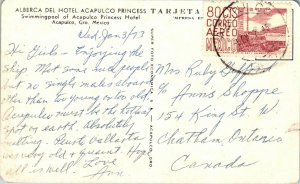 ALBERCA DEL HOTEL ACAPULCO PRINCESS
Swimmingpool of Acapulco Princess Hotel
Acapulco, Gro. Mexico
TARJETA
Wed Jan 3/73
Hi Girls - Enjoying the
ship. Met some nice people
but no single males closer
other than too young or too old.
Acapulco must be the hottest
spot on earth. Absolutely
Puerto Vallarta
very old & quaint. Hope
all is well. Love
Ann
80 CTS
CORREO
AEREO
MEXICO
Mrs Ruby
c/o Anns Shoppe
154 King St. W
Chatham, Ontario
Canada